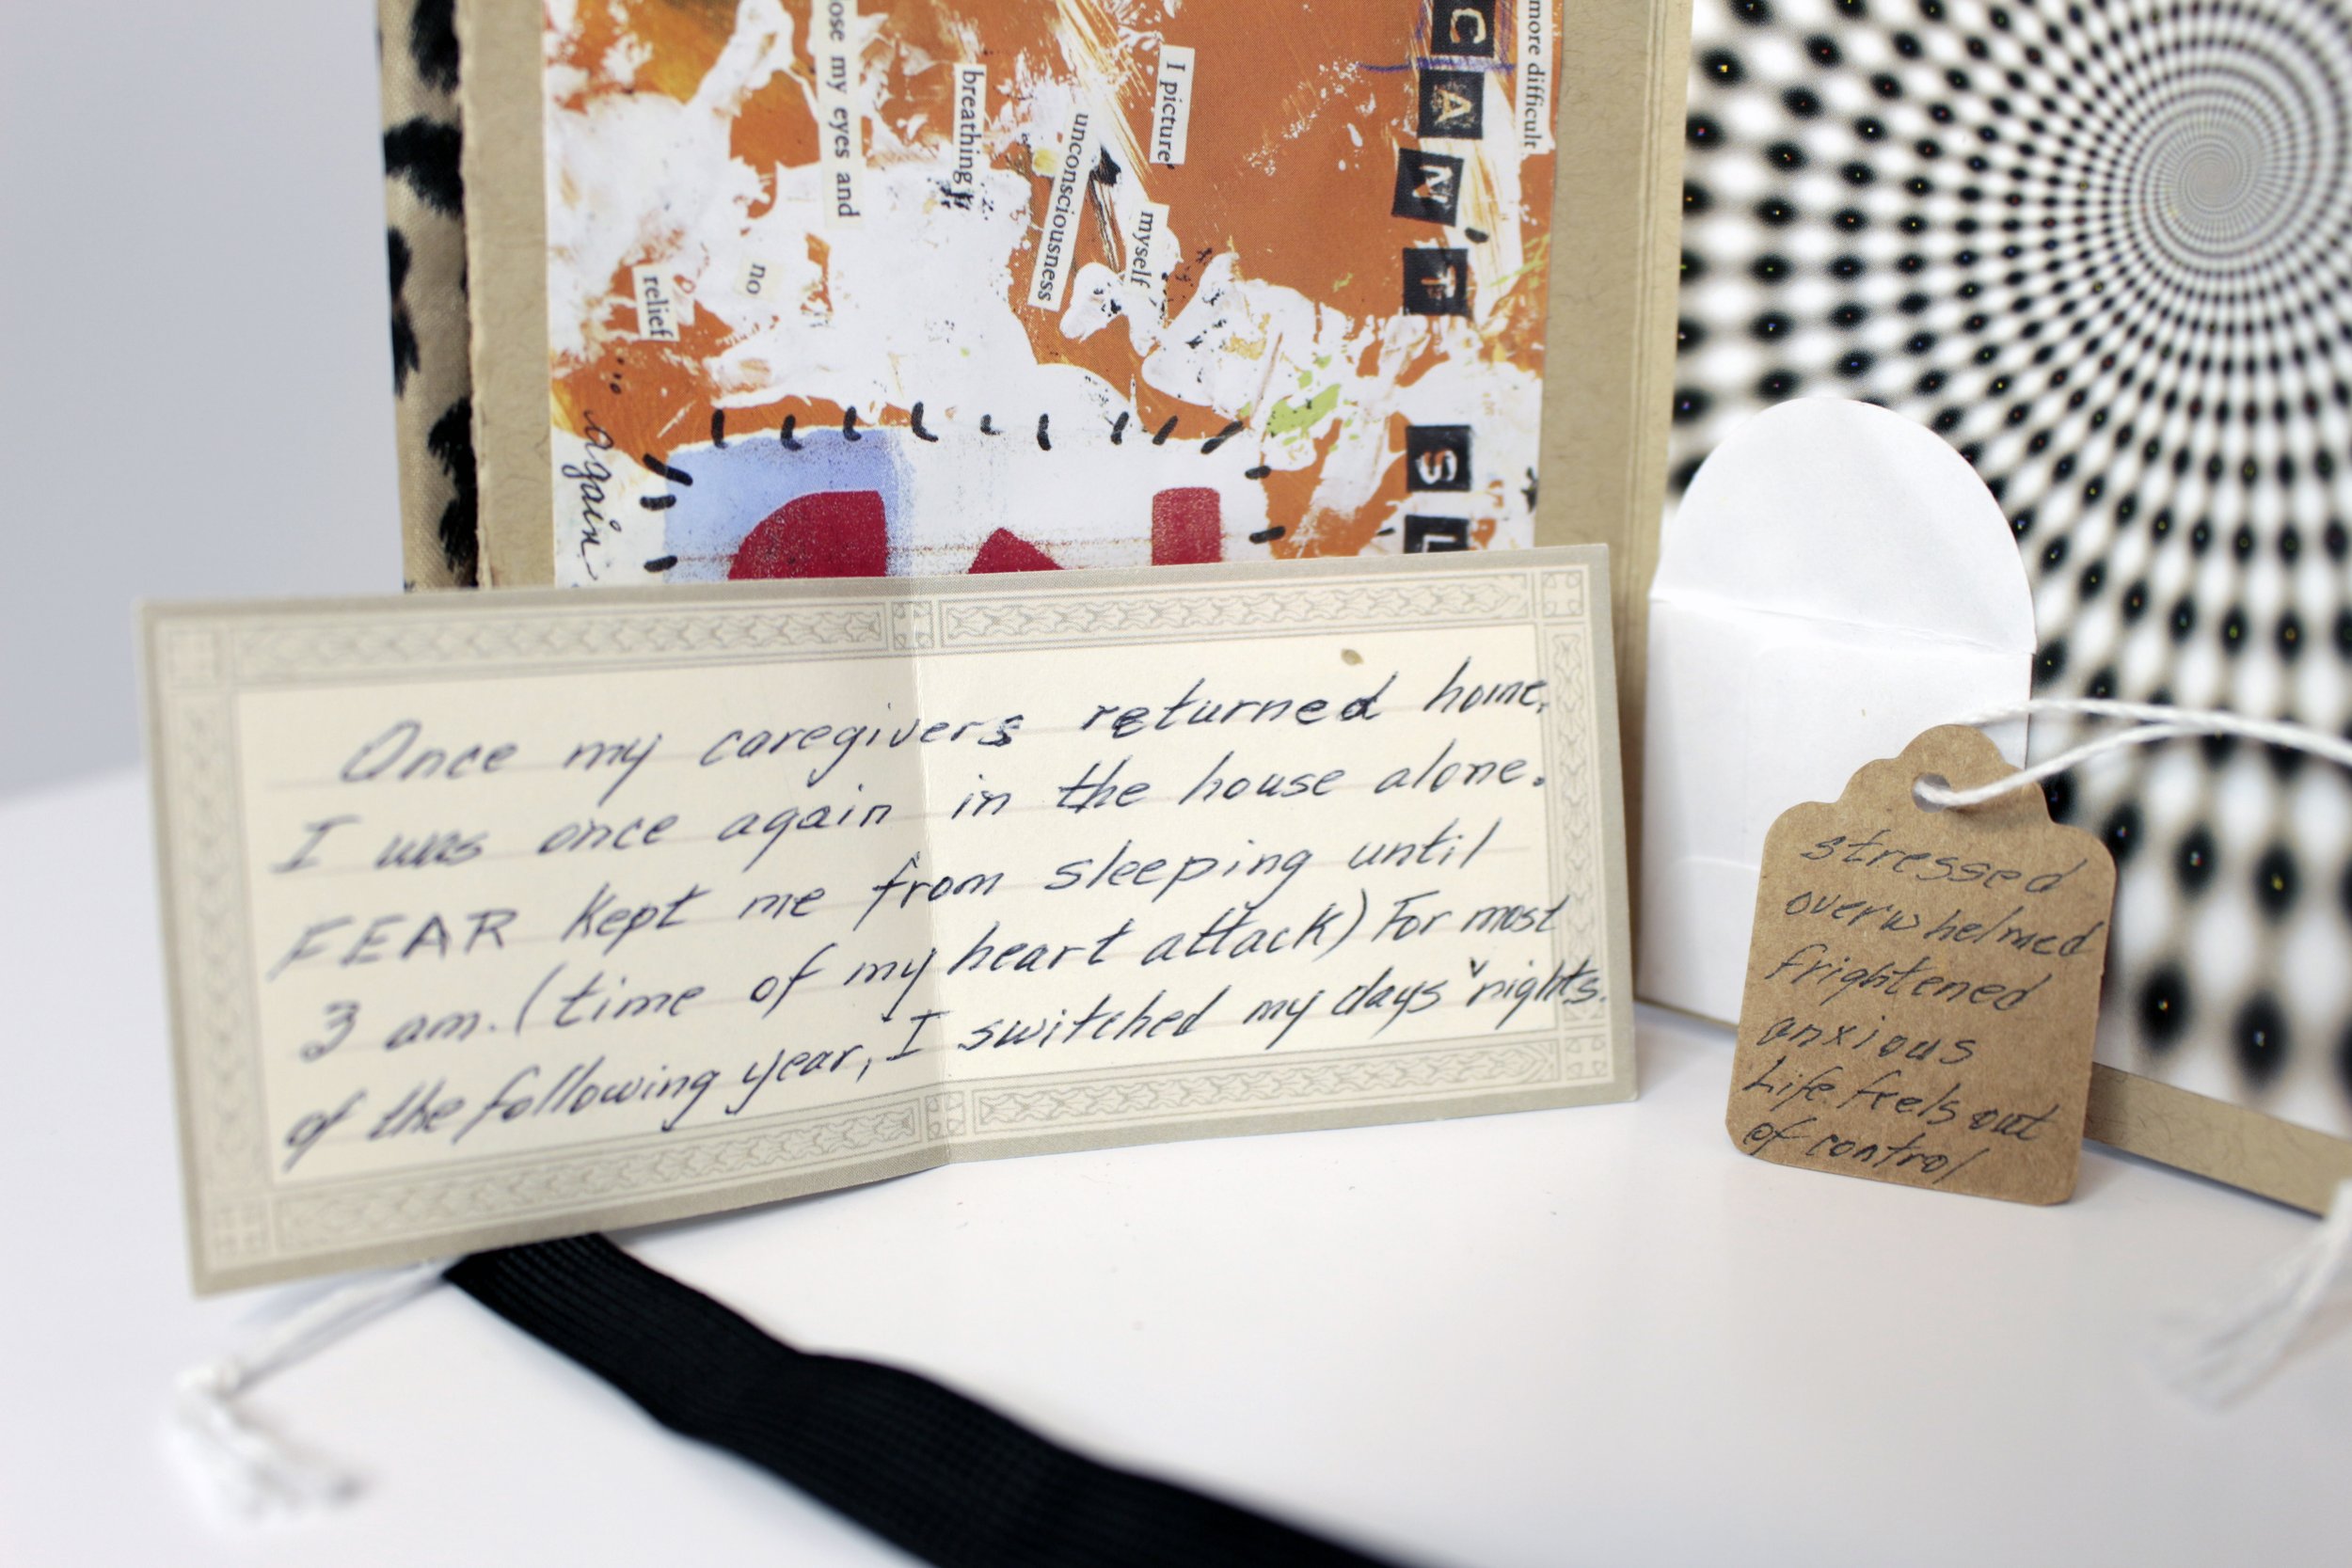 more difficult
CAN'T
SL
I picture
myself
unconsciousness
breathing
ose my eyes and
no
relief
... again
Once my caregivers returned home,
I was once again in the house alone.
FEAR kept me from sleeping until
3 am. (time of my heart attack) For most
of the following year, I switched my days nights.
stressed
overwhelmed
frightened
anxious
Life feels out
of control